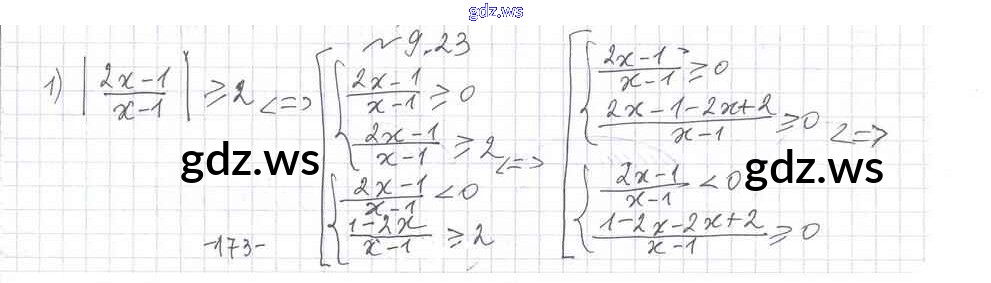 gdz.ws
№ 9.23
1) |(2x-1)/(x-1)| ≥ 2 <=> [ { (2x-1)/(x-1) ≥ 0
(2x-1)/(x-1) ≥ 2
{ (2x-1)/(x-1) < 0
(1-2x)/(x-1) ≥ 2
<=> [ { (2x-1)/(x-1) ≥ 0
(2x-1-2x+2)/(x-1) ≥ 0
{ (2x-1)/(x-1) < 0
(1-2x-2x+2)/(x-1) ≥ 0
<=>
gdz.ws
gdz.ws
-173-